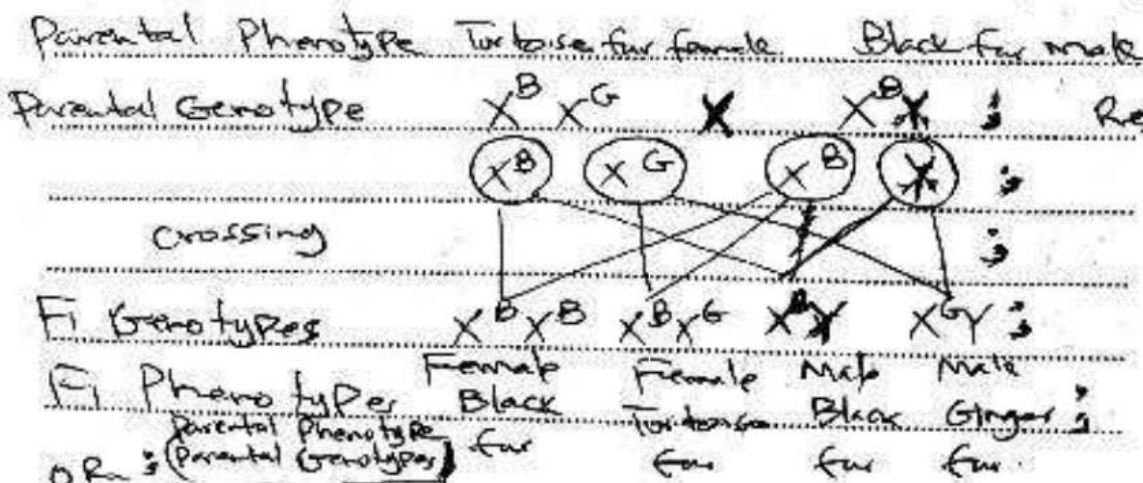 Parental Phenotype Tortoise fur female Black fur male
Parental Genotype X^B X^G X X^B Y ; Re
X^B X^G X^B Y ;
crossing ;
F1 Genotypes X^B X^B X^B X^G X^B Y X^G Y ;
F1 Phenotypes Female Black fur Female Tortoise fur Male Black fur Male Ginger fur ;
OR ; (Parental Phenotype
(Parental Genotypes)